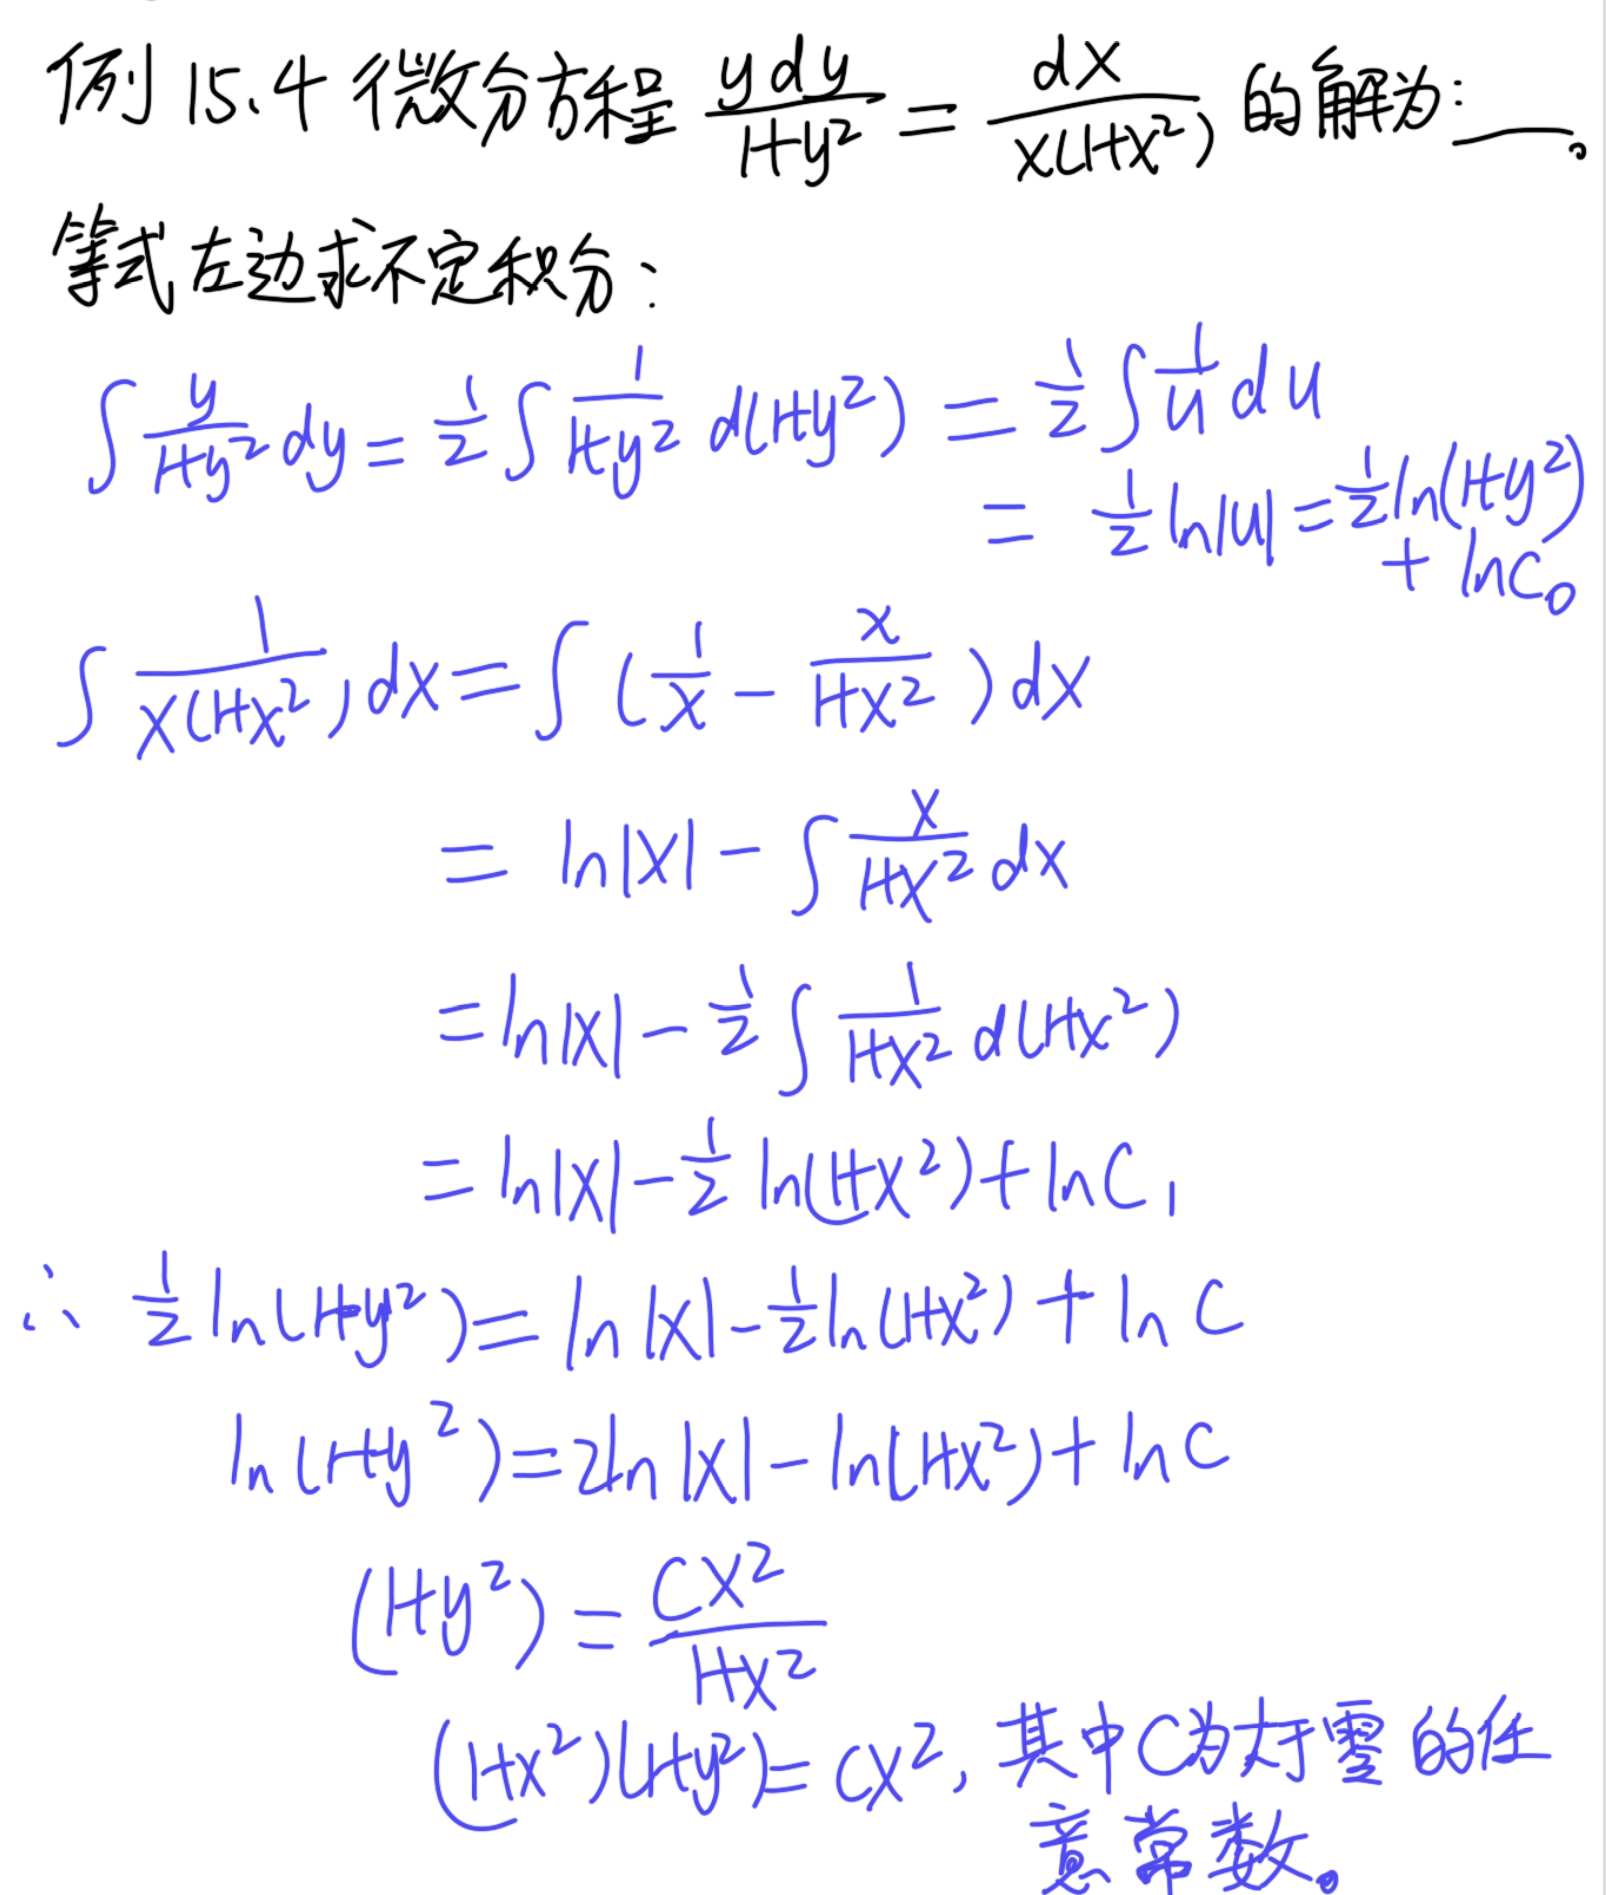 例 15.4 微分方程 \frac{ydy}{1+y^2} = \frac{dx}{x(1+x^2)} 的解为:____。
等式左边求不定积分:
∫ \frac{y}{1+y^2} dy = \frac{1}{2} ∫ \frac{1}{1+y^2} d(1+y^2) = \frac{1}{2} ∫ \frac{1}{u} du
= \frac{1}{2} ln|u| = \frac{1}{2} ln(1+y^2) + lnC_0
∫ \frac{1}{x(1+x^2)} dx = ∫ (\frac{1}{x} - \frac{x}{1+x^2}) dx
= ln|x| - ∫ \frac{x}{1+x^2} dx
= ln|x| - \frac{1}{2} ∫ \frac{1}{1+x^2} d(1+x^2)
= ln|x| - \frac{1}{2} ln(1+x^2) + lnC_1
∴ \frac{1}{2} ln(1+y^2) = ln|x| - \frac{1}{2} ln(1+x^2) + lnC
ln(1+y^2) = 2ln|x| - ln(1+x^2) + lnC
(1+y^2) = \frac{Cx^2}{1+x^2}
(1+x^2)(1+y^2) = Cx^2, 其中C为大于零的任
意常数。